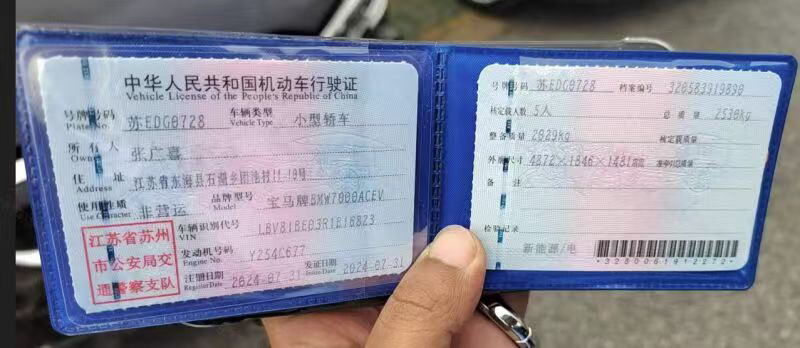 中华人民共和国机动车行驶证
Vehicle License of the People's Republic of China
号牌号码 苏EDG0728 车辆类型 小型轿车
Plate No. Vehicle Type
所有人 张广喜
Owner
住址 江苏省东海县石湖乡团池村11-10号
Address
使用性质 非营运 品牌型号 宝马牌BMW7000ACEV
Use Character Model
车辆识别代号 LBV81BE03R1B16823
VIN
发动机号码 Y254C677
Engine No.
注册日期 2024-07-31 发证日期 2024-07-31
Register Date Issue Date
江苏省苏州
市公安局交
通警察支队
号牌号码 苏EDG0728 档案编号 320583919890
核定载人数 5人 总质量 2530kg
整备质量 2089kg 核定载质量
外廓尺寸 4872×1846×1481mm 准牵引总质量
备注
检验记录
新能源/电
*3280061912272*